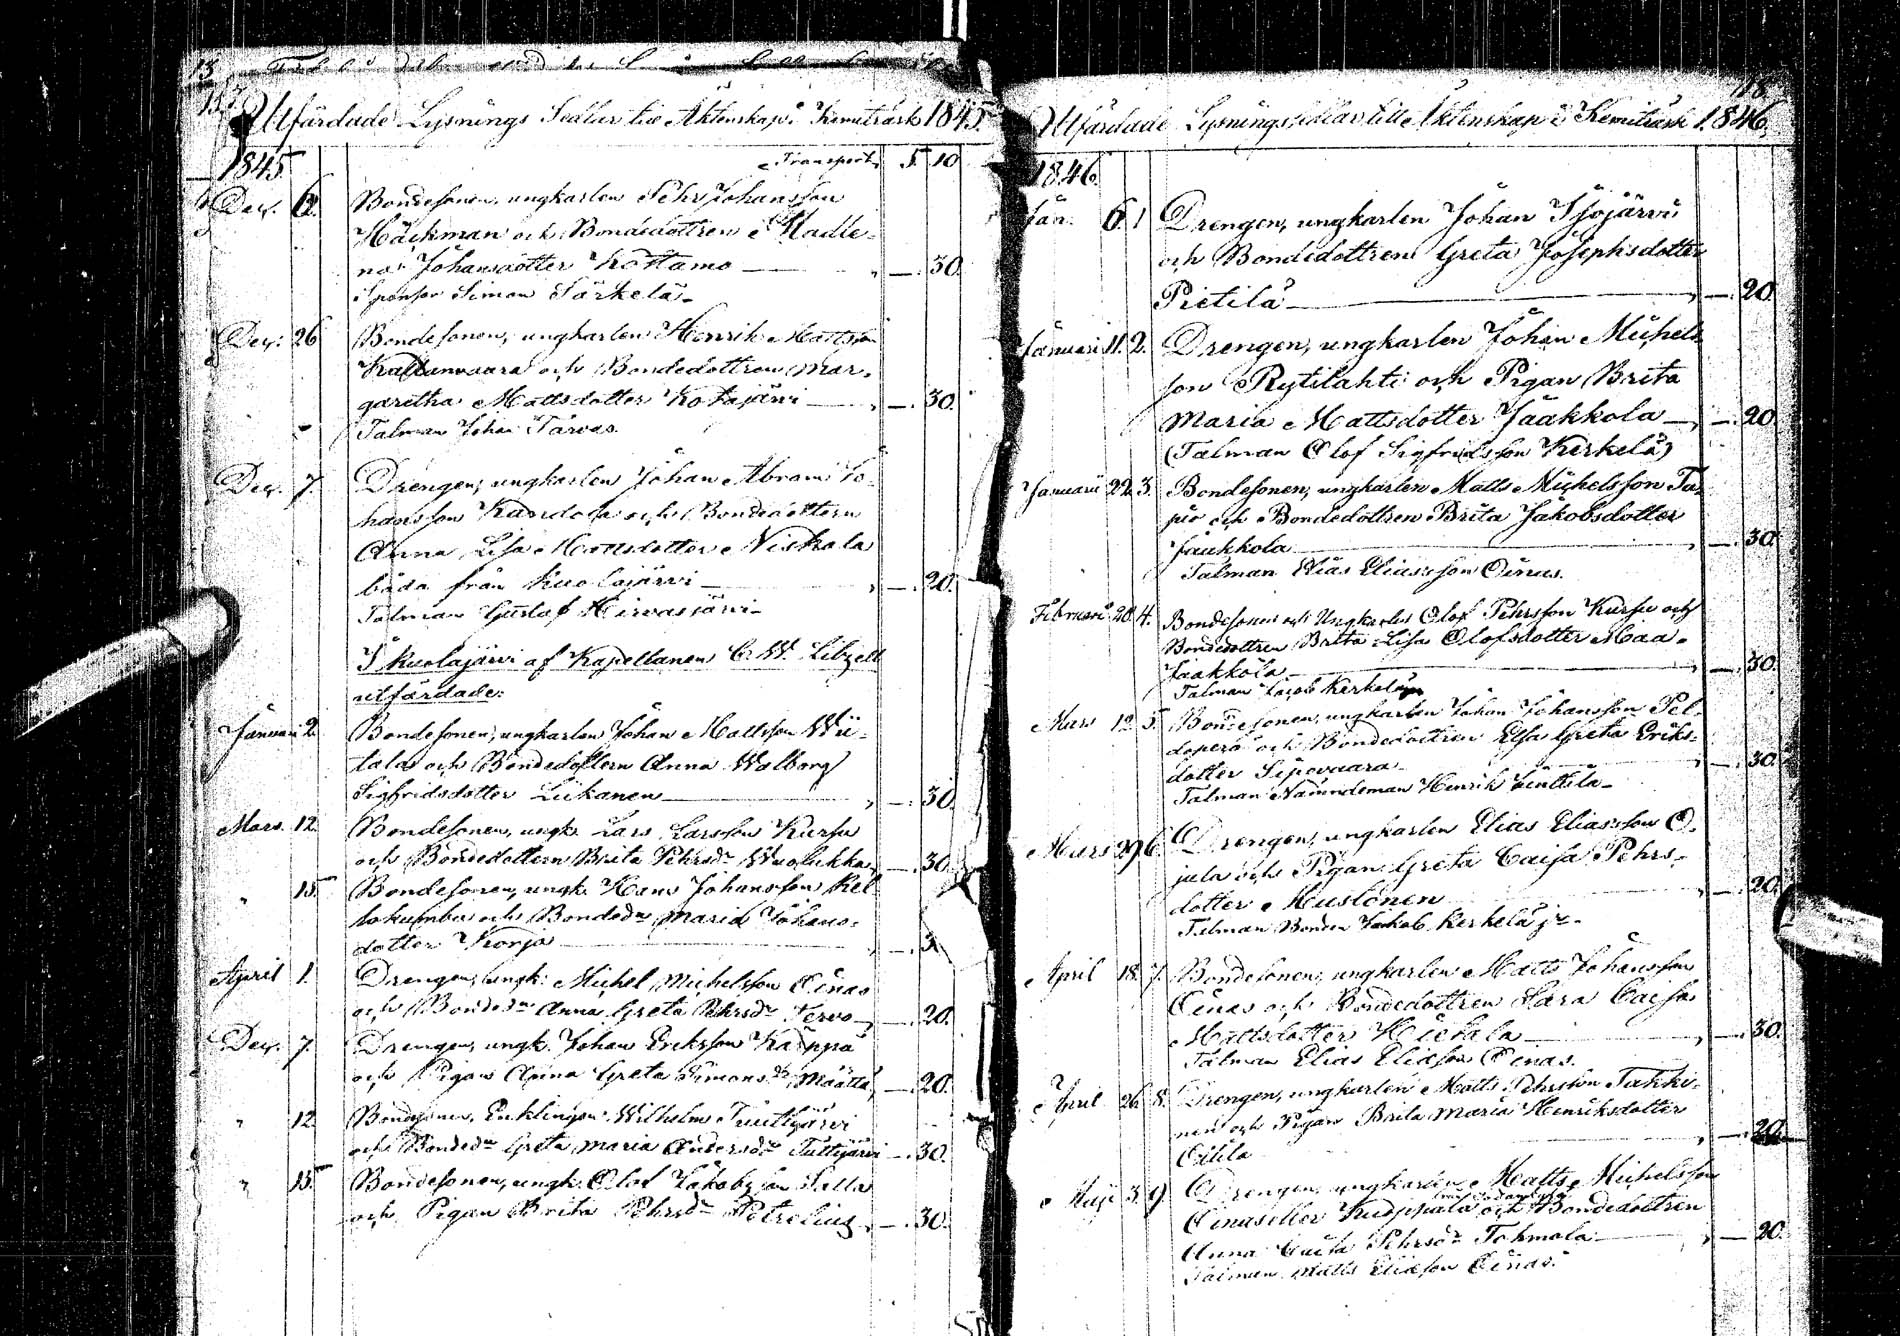 Utfärdade Lysnings Sedler till Äktenskap i Kemiträsk 1845
1845. Transport 5. 10
Dec. 6. Bondesonen, ungkarlen Pehr Johansson
Häckman och Bondedottren Madle-
na Johansdotter Kottamo — 30.
Sponsor Simon Särkelä.
Dec. 26 Bondesonen, ungkarlen Henrik Mattson
Kallunvaara och Bondedottren Mar-
garetha Mattsdotter Kotajärvi — 30.
Talman Johan Tarvas.
Dec. 7. Drengen, ungkarlen Johan Abram Jo-
hansson Kandola och Bondedottern
Anna Lisa Mattsdotter Niskala
båda från Kuolajärvi — 20.
Talman Gustaf Hirvasjärvi
I Kuolajärvi af Kapellanen C. W. Libzell
utfärdade:
Januari 2. Bondesonen, ungkarlen Johan Mattsson Wii-
tala och Bondedottern Anna Walborg
Sigfridsdotter Liikanen — 30.
Mars. 12. Bondesonen, ungk. Lars Larsson Kursu
och Bondedottern Brita Pehrsdr — 30.
" 15. Bondesonen, ungk. Hans Johansson Kel-
lokumbu och Bondedr Maria Johans-
dotter Korja — 3
April 1. Drengen, ungk. Michel Michelsson Oinas
och Bondedr Anna Greta Pehrsdr Tervo — 20.
Dec. 7. Drengen, ungk. Johan Eriksson Käppä
och Pigan Anna Greta Simonsdr Määttä — 20.
" 12. Bondesonen, Enklingen Wilhelm Tuuttijärvi
och Bondedr Greta Maria Andersdr Tuttijärvi — 30.
" 15. Bondesonen, ungk. Olof Jakobsson Salla
och Pigan Brita Pehrsdr Petrelius — 30.
118
Utfärdade Lysningssedlar till Äktenskap i Kemiträsk 1846.
1846.
Jan. 6. 1 Drengen, ungkarlen Johan Isojärvi
och Bondedottren Greta Josephsdotter
Pietilä — 20
Januari 11. 2. Drengen, ungkarlen Johan Michels-
son Rytilahti och Pigan Brita
Maria Mattsdotter Jaakkola — 20
(Talman Olof Sigfridsson Kerkelä)
Januari 22. 3. Bondesonen, ungkarlen Matts Michelsson Ta-
pio och Bondedottren Brita Jakobsdotter
Jaakkola — 30.
Talman Elias Eliasson Oinas.
Februari 20. 4. Bondesonen och Ungkarlen Olof Pehrsson Kursu och
Bondedottren Brita Lisa Olofsdotter Maa-
Jaakkola — 30.
Talman Jacob Kerkelä
Mars 12 5. Bondesonen, ungkarlen Johan Johansson Pel-
doperä och Bondedottren Elsa Greta Eriks-
dotter Sipovaara — 30.
Talman Nämndeman Henrik Jänttilä
Mars 29 6. Drengen, ungkarlen Elias Eliasson O-
jula och Pigan Greta Caisa Pehrs-
dotter Mustonen — 20
Talman Bonden Jakob Kerkelä jr
April 18. 7. Bondesonen, ungkarlen Matts Johansson
Oinas och Bondedottren Sara Caisa
Mattsdotter Hietala — 30.
Talman Elias Eliasson Oinas.
April 26. 8. Drengen, ungkarlen Matts Pehrsson Takki-
nen och Pigan Brita Maria Henriksdotter
Ollila — 20
Maji 3. 9. Drengen, ungkarlen Matts Michelsson
Oinas eller Kuoppala och Bondedottren
Anna Caisa Pehrsdr Tohmola — 20.
Talman Matts Eliasson Oinas.